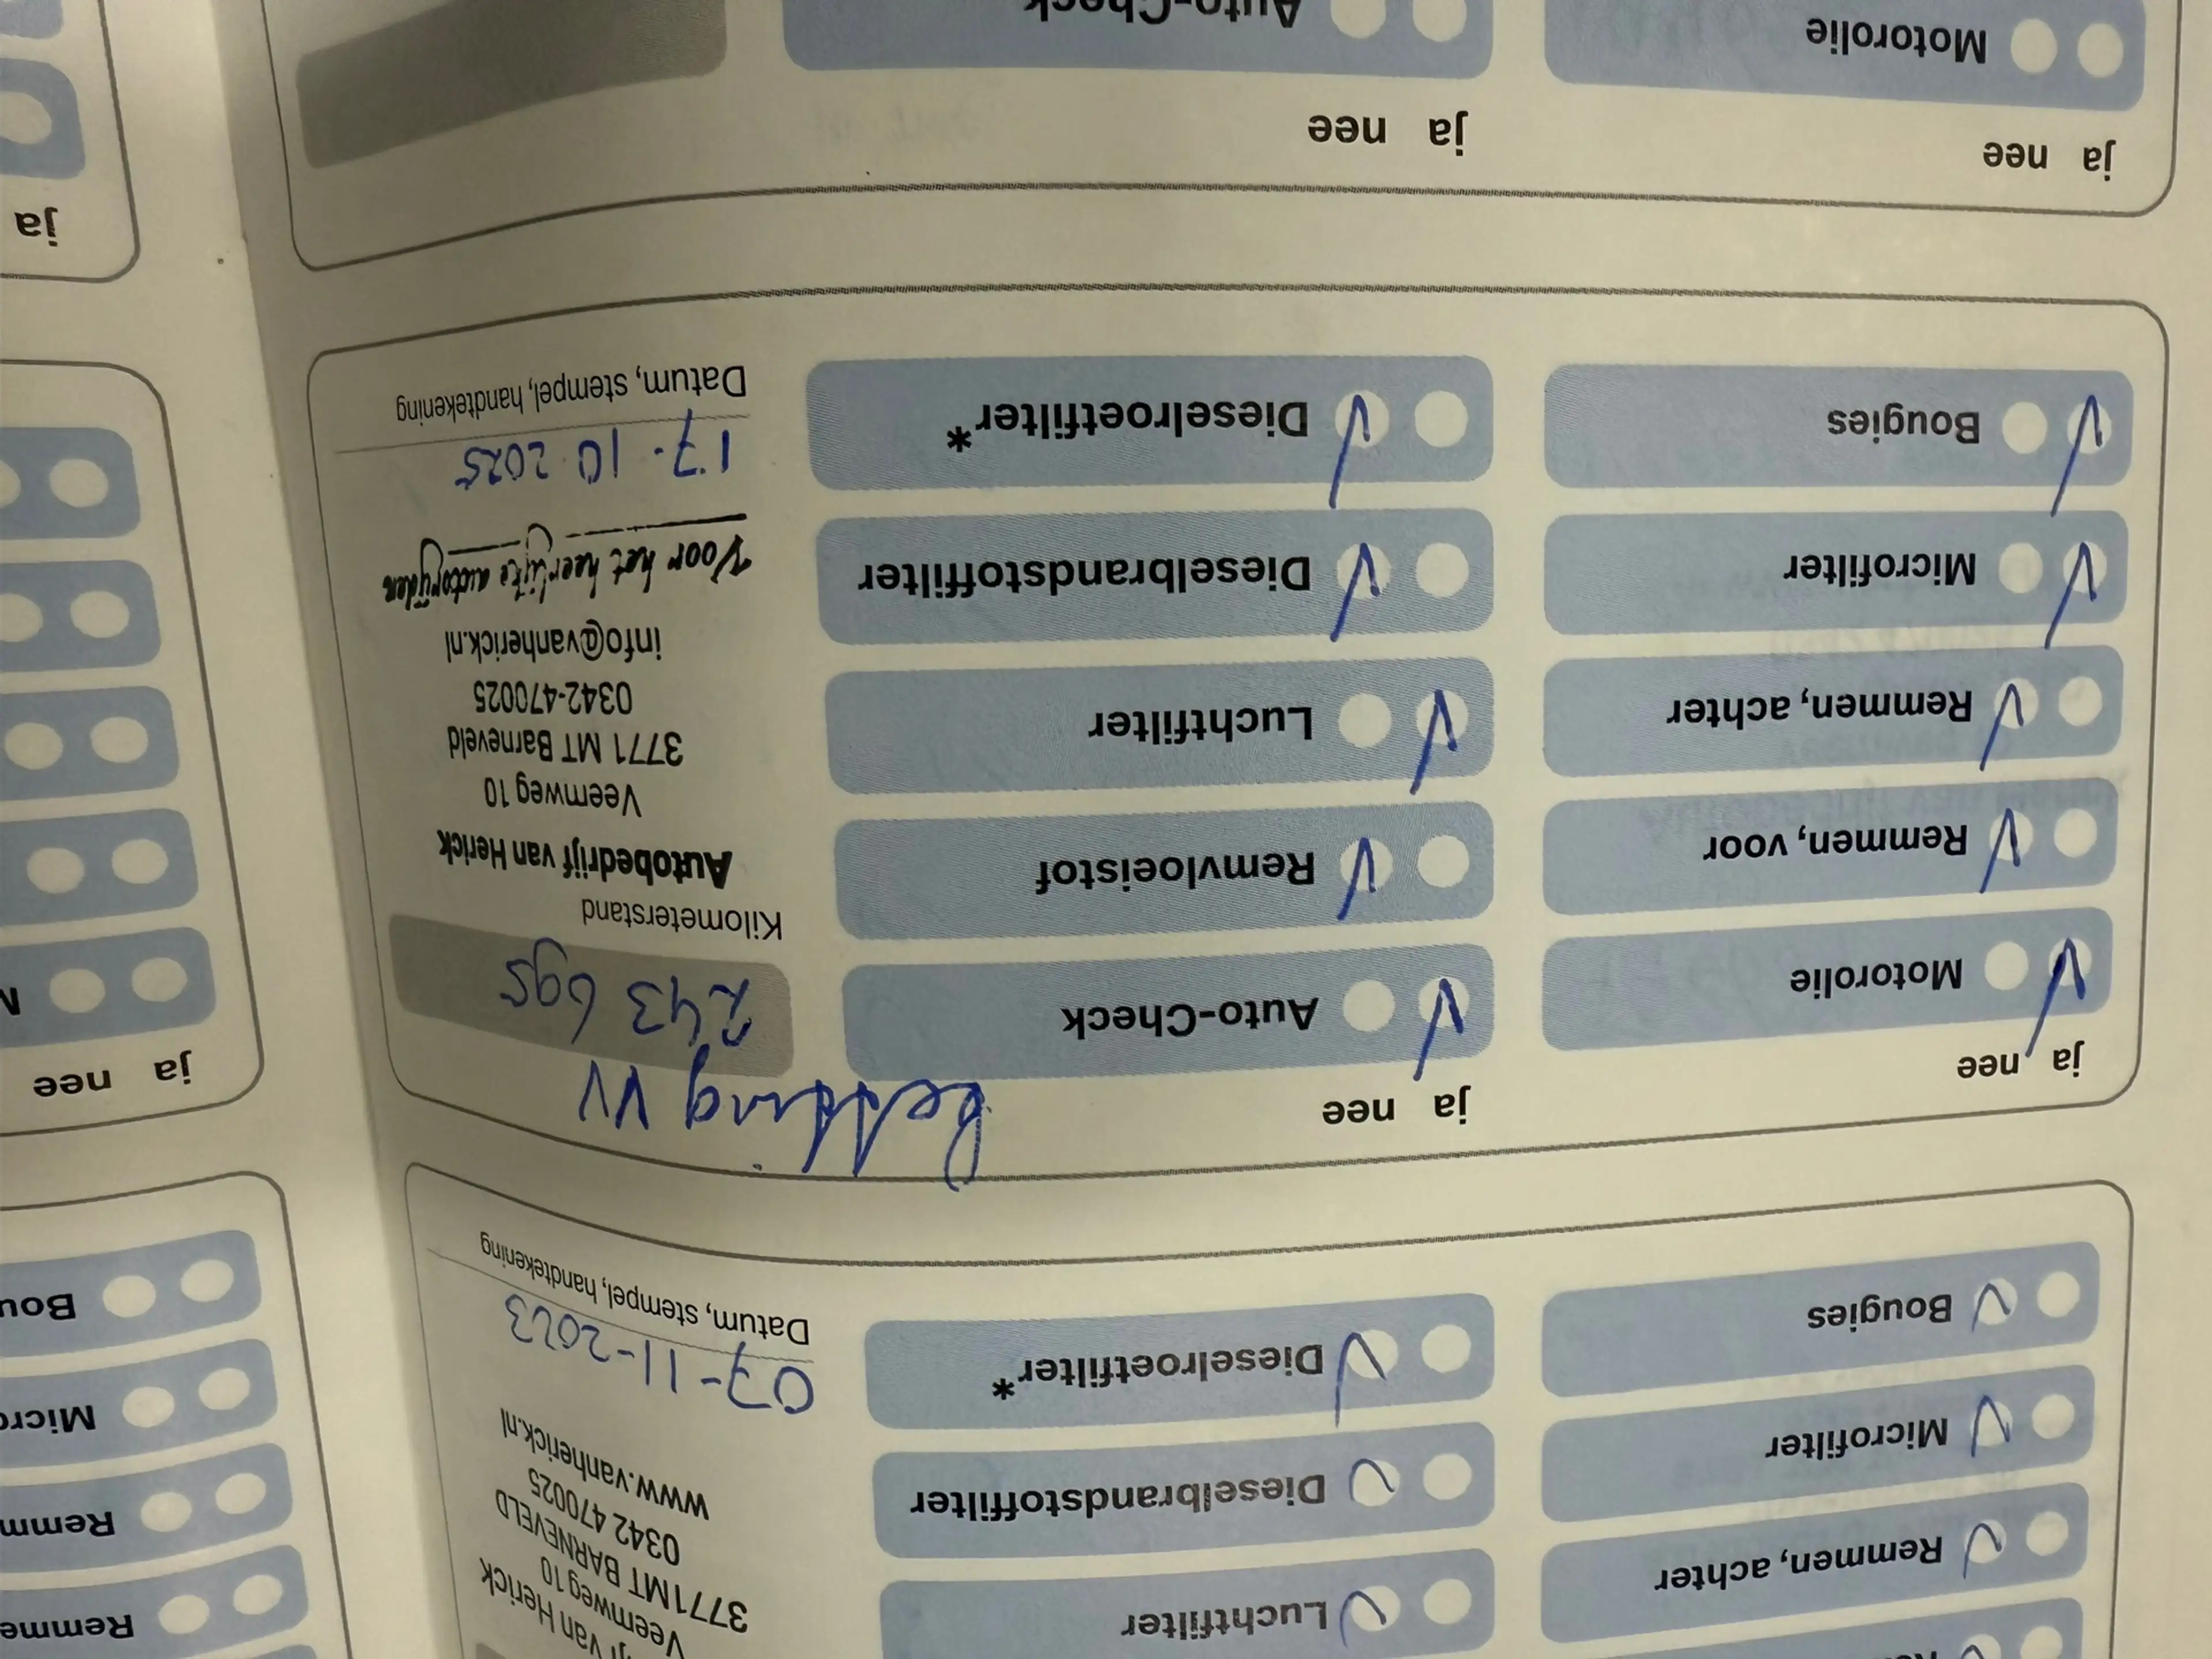 Remmen, achter
Microfilter
Bougies
Luchtfilter
Dieselbrandstoffilter
Dieselroetfilter*
van Herick
Veemweg 10
3771MT BARNEVELD
0342 470025
www.vanherick.nl
07-11-2023
Datum, stempel, handtekening
ja nee
Motorolie
Remmen, voor
Remmen, achter
Microfilter
Bougies
ja nee
Auto-Check
Remvloeistof
Luchtfilter
Dieselbrandstoffilter
Dieselroetfilter*
ketting VV
243 695
Kilometerstand
Autobedrijf van Herick
Veemweg 10
3771 MT Barneveld
0342-470025
info@vanherick.nl
Voor het heerlijke autorijden
17-10 2025
Datum, stempel, handtekening
ja nee
Motorolie
ja nee
Auto-Check
ja nee
ja